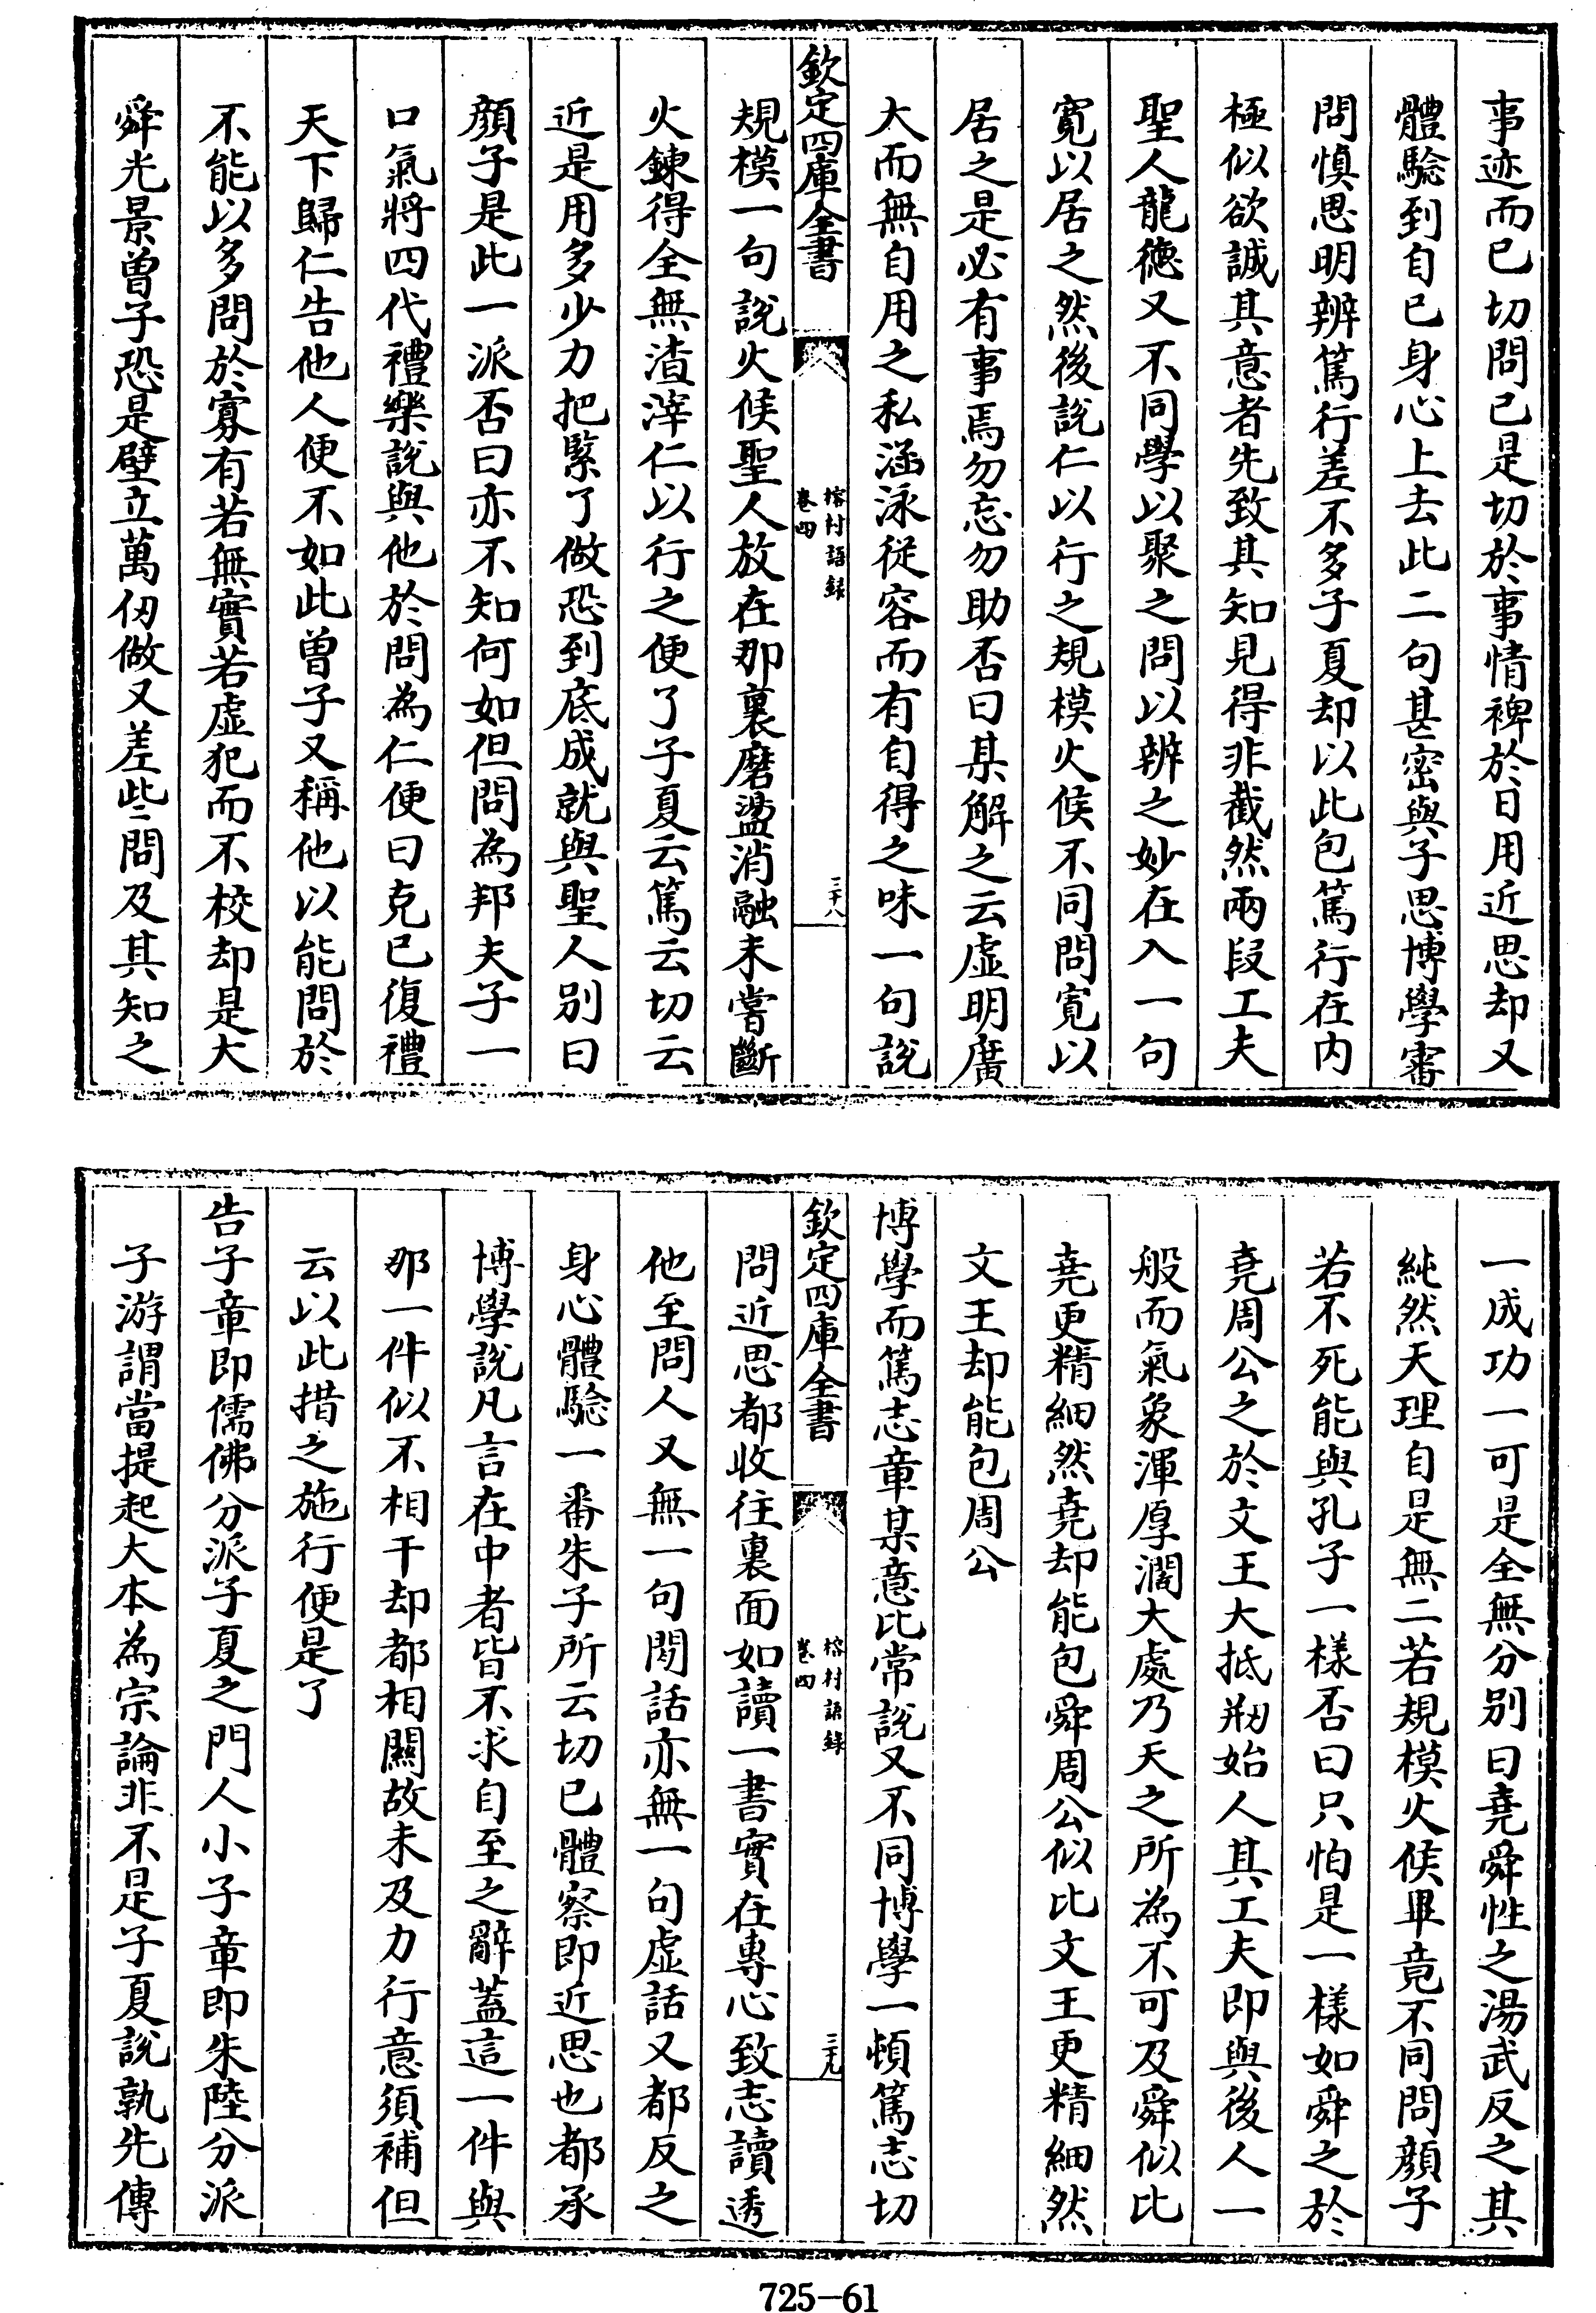 事迹而已切問已是切於事情裨於日用近思却又
體驗到自已身心上去此二句甚密與子思博學審
問慎思明辨篤行差不多子夏却以此包篤行在内
極似欲誠其意者先致其知見得非截然兩段工夫
聖人龍德又不同學以聚之問以辨之妙在入一句
寛以居之然後說仁以行之規模火候不同問寛以
居之是必有事焉勿忘勿助否曰某解之云虚明廣
大而無自用之私涵泳從容而有自得之味一句說
欽定四庫全書
榕村語録
卷四
三十八
規模一句說火候聖人放在那裏磨盪消融未嘗斷
火鍊得全無渣滓仁以行之便了子夏云篤云切云
近是用多少力把緊了做恐到底成就與聖人别曰
顔子是此一派否曰亦不知何如但問為邦夫子一
口氣將四代禮樂說與他於問為仁便曰克已復禮
天下歸仁告他人便不如此曽子又稱他以能問於
不能以多問於寡有若無實若虚犯而不校却是大
舜光景曽子恐是壁立萬仭做又差些問及其知之
一成功一可是全無分别曰堯舜性之湯武反之其
純然天理自是無二若規模火候畢竟不同問顔子
若不死能與孔子一樣否曰只怕是一樣如舜之於
堯周公之於文王大抵剏始人其工夫即與後人一
般而氣象渾厚濶大處乃天之所為不可及舜似比
堯更精細然堯却能包舜周公似比文王更精細然
文王却能包周公
博學而篤志章某意比常說又不同博學一頓篤志切
欽定四庫全書
榕村語録
卷四
三十九
問近思都收往裏面如讀一書實在專心致志讀透
他至問人又無一句閒話亦無一句虚話又都反之
身心體驗一番朱子所云切已體察即近思也都承
博學說凡言在中者皆不求自至之辭蓋這一件與
那一件似不相干却都相關故未及力行意須補但
云以此措之施行便是了
告子章即儒佛分派子夏之門人小子章即朱陸分派
子游謂當提起大本為宗論非不是子夏說孰先傳
725-61